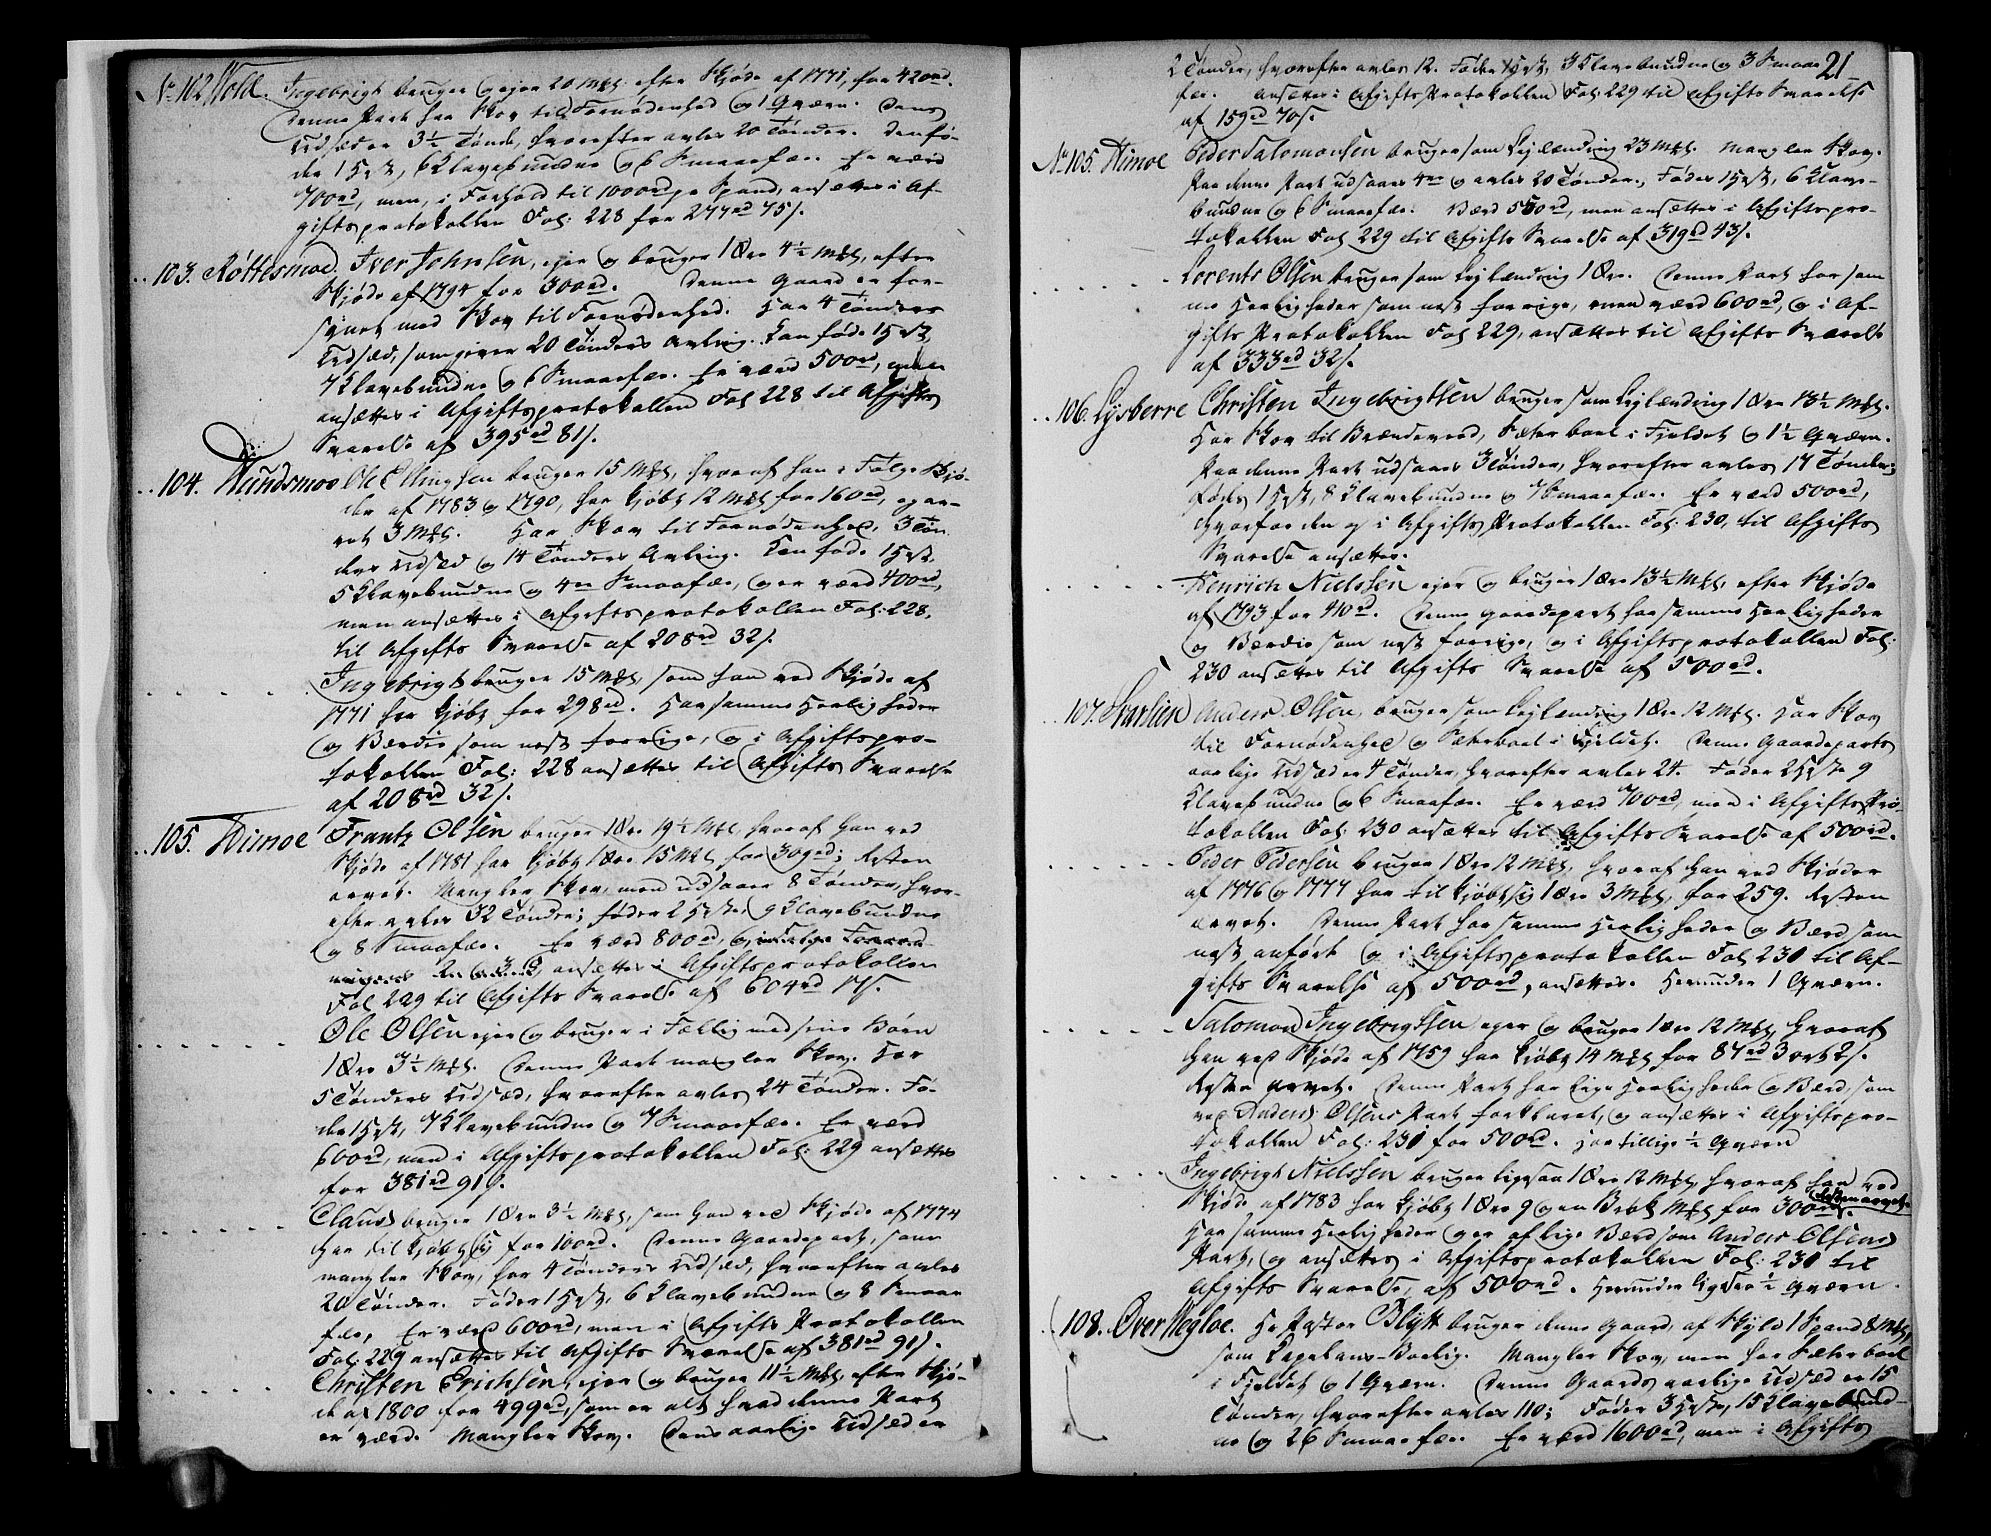 No 102 Wold. Ingebrigt bruger og ejer 20 Mkl. efter Skjøde af 1771, for 420rd.
Denne Part har Skov til Fornødenhed og 1 Qværn. Dens
Udsæd er 3½ Tønde, hvorefter avles 20 Tønder. Den fø-
der 1 Hest, 6 Klavebundne og 6 Smaafæ. Er værd
700rd, men, i Forhold til 1000rd pr Spand, ansættes i Af-
giftsprotokollen Fol: 228 for 277rd 75s.
103. Røttesmoe. Iver Johnsen, ejer og bruger 1 Øre 4½ Mkl, efter
Skjøde af 1794 for 300rd. Denne Gaard er for-
synet med Skov til Fornødenhed. Har 4 Tønders
Udsæd, som giver 20 Tønders Avling. Kan føde 1 Hest,
7 Klavebundne og 6 Smaafæ. Er værd 500rd, men
ansættes i Afgiftsprotokollen Fol 228 til Afgifts
Svarelse af 395rd 81s.
104. Hundsmoe Ole Ellingsen bruger 15 Mkl, hvoraf han i Følge Skjø-
der af 1783 og 1790, har kjøbt 12 Mkl for 160rd, og ar-
vet 3 Mkl. Har Skov til Fornødenhed, 3 Tøn-
ders Udsæd og 14 Tønders Avling. Kan føde 1 Hest,
5 Klavebundne og 4re Smaafæ, og er værd 400rd,
men ansættes i Afgiftsprotokollen Fol: 228,
til Afgifts Svarelse af 208rd 32s.
Ingebrigt bruger 15 Mkl, som han ved Skjøde af
1771 har kjøbt for 298rd. Har samme Herligheder
og Værdie som næst forrige, og i Afgiftspro-
tokollen Fol: 228 ansættes til Afgifts Svarelse
af 208rd 32s.
105. Himoe Frantz Olsen bruger 1 Øre 19½ Mkl, hvoraf han ved
Skjøde af 1781 har kjøbt 1 Øre 15 Mkl for 309rd; Resten
arvet. Mangler Skov, men udsaaer 8 Tønder, hvor-
efter avles 32 Tønder; føder 2 Heste, 9 Klavebundne
og 8 Smaafæ. Er værd 800rd, og i Følge
ansættes i Afgiftsprotokollen
Fol 229 til Afgifts Svarelse af 604rd 17s.
Ole Olsen ejer og bruger i Fællig med sine Børn
1 Øre 3½ Mkl. Denne Part mangler Skov. Har
5 Tønders Udsæd, hvorefter avles 24 Tønder. Fø-
der 1 Hest, 7 Klavebundne og 7 Smaafæ. Er værd
600rd, men i Afgiftsprotokollen Fol: 229 ansættes
for 381rd 91s.
Claus bruger 1 Øre 3½ Mkl, som han ved Skjøde af 1774
har tilkjøbt sig for 100rd. Denne Gaardepart, som
mangler Skov, har 4 Tønders Udsæd, hvorefter avles
20 Tønder. Føder 1 Hest, 6 Klavebundne og 8 Smaae
fæ, Er værd 600rd, men i Afgifts Protokollen
Fol: 229 ansættes til Afgifts Svarelse af 381rd 91s.
Christen Erichsen, ejer og bruger 11½ Mkl, efter Skjø-
de af 1800 for 499rd, som er alt hvad denne Part
er værd. Mangler Skov. Dens aarlige Udsæd er
21
2 Tønder, hvorefter avles 12. Føder 1 Hest, 3 Klavebundne og 3 Smaae
fæ. Ansættes i Afgifts Protokollen Fol: 229 til Afgifts Svarelse
af 159rd 70s.
No 105. Himoe Peder Salomonsen bruger som Lejlænding 23 Mkl. Mangler Skov.
Paa denne Part udsaaes 4re og avles 20 Tønder, Føder 1 Hest, 6 Klave-
bundne og 6 Smaafæ. Værd 550rd, men ansættes i Afgiftspro-
tokollen Fol 229 til Afgifts Svarelse af 319rd 43s.
Lorents Olsen bruger som Lejlænding 1 Øre. Denne Part har sam-
me Herligheder som næst forrige, men værd 600rd, og i Af-
gifts Protokollen Fol 229, ansættes til Afgifts Svarelse
af 333rd 32s.
106. Lysberre Christen Ingebrigtsen bruger som Lejlænding 1 Øre 13½ Mkl.
Har Skov til Brændeveed, Sæterboel i Fjeldet og 1½ Qværn.
Paa denne Part udsaaes 3 Tønder, hvorefter avles 17 Tønder;
Føder 1 Hest, 8 Klavebundne og 7 Smaafæ. Er værd 500rd,
hvorfor den og i Afgifts Protokollen Fol: 230, til Afgifts
Svarelse ansættes.
Henrich Nielssen ejer og bruger 1 Øre 13½ Mkl, efter Skjøde
af 1793 for 410rd. Denne Gaardepart har samme Herligheder
og Værdie som næst forrige, og i Afgiftsprotokollen Fol:
230 ansættes til Afgifts Svarelse af 500rd.
107. Svarlien Anders Olsen, bruger som Lejlænding 1 Øre 12 Mkl. Har Skov
til Fornødenhed og Sæterboel i Fjeldet. Denne Gaardeparts
aarlige Udsæd er 4 Tønder, hvorefter avles 24. Føder 2 Heste 9
Klavebundne og 6 Smaafæ. Er værd 700rd, men i Afgifts Pro-
tokollen Fol: 230 ansættes til Afgifts Svarelse af 500rd.
Peder Pedersen bruger 1 Øre 12 Mkl, hvoraf han ved Skjøder
af 1776 og 1777 har tilkjøbt sig 1 Øre 3 Mkl, for 259. Resten
arvet. Denne Part har samme Herligheder og Værd som
næst anført og i Afgiftsprotokollen Fol 230 til Af-
gifts Svarelse af 500rd, ansættes. Herunder 1 Qværn.
Salomon Ingebrigtsen ejer og bruger 1 Øre 12 Mkl, hvoraf
han ved Skjøde af 1759 har kjøbt 14 Mkl for 87rd 3 ort 2s.
Resten arvet. Denne Part har lige Herligheder og Værd, som
ved Anders Olsens Part forklaret, og ansættes i Afgiftspro-
tokollen Fol: 231 for 500rd. Har tillige ½ Qværn
Ingebrigt Nielssen bruger ligesaa 1 Øre 12 Mkl, hvoraf han ved
Skjøde af 1783 har kjøbt 1 Øre 9 og en Mkl for 300rd. Resten arvet.
Har samme Herligheder og er af lige Værd som Anders Olsens
Part, og ansættes i Afgiftsprotokollen Fol: 231 til
Afgifts Svarelse, af 500rd. Herunder ½ Qværn.
108. Over Megloe. Hr Pastor Blytt bruger denne Gaard, af Skyld 1 Spand 8 Mkl,
som Capelans-Boelig. Mangler Skov, men har Sæterboel
i Fjeldet og 1 Qværn. Denne Gaards aarlige Udsæd er 15
Tønder, hvorefter avles 110; Føder 3 Heste, 15 Klavebund-
ne og 26 Smaafæ. Er værd 1600rd, men i Afgifts